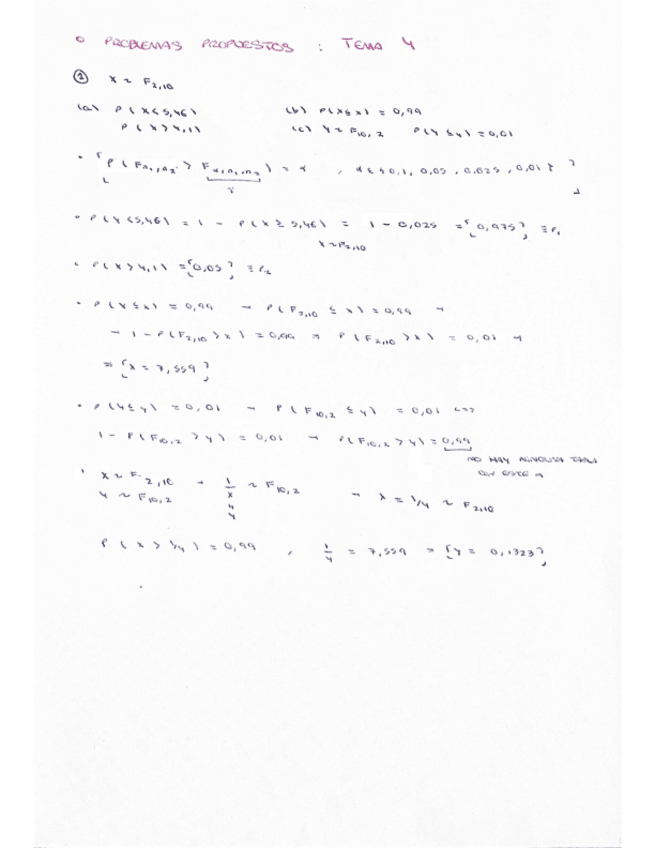 o PROBLEMAS PROPUESTOS : TEMA 4
② X ~ F2,10
(a) P(X<5,46) (b) P(X≤x) = 0,99
P(X>4,1) (c) Y ~ F10,2 P(Y≤y) = 0,01
• ⌈P(Fn1,n2 > Fα,n1,n2) = α , α ∈ {0.1, 0.05, 0.025, 0.01}⌋
• P(X<5,46) = 1 - P(X≥5,46) = 1 - 0,025 = ⌈0,975⌋ ≡ P1
X~F2,10
• P(X>4,1) = ⌈0,05⌋ ≡ P2
• P(X≤x) = 0,99 → P(F2,10 ≤ x) = 0,99 →
→ 1 - P(F2,10 > x) = 0,99 → P(F2,10 > x) = 0,01 →
⇒ ⌈x = 7,559⌋
• P(Y≤y) = 0,01 → P(F10,2 ≤ y) = 0,01 <=>
1 - P(F10,2 > y) = 0,01 → P(F10,2 > y) = 0,99
NO HAY NINGUNA TABLA
CON ESTE α
• X ~ F2,10 → 1/X ~ F10,2 → X = 1/Y ~ F2,10
Y ~ F10,2
Y
P(X > 1/y) = 0,99 , 1/y = 7,559 ⇒ ⌈y = 0,1323⌋